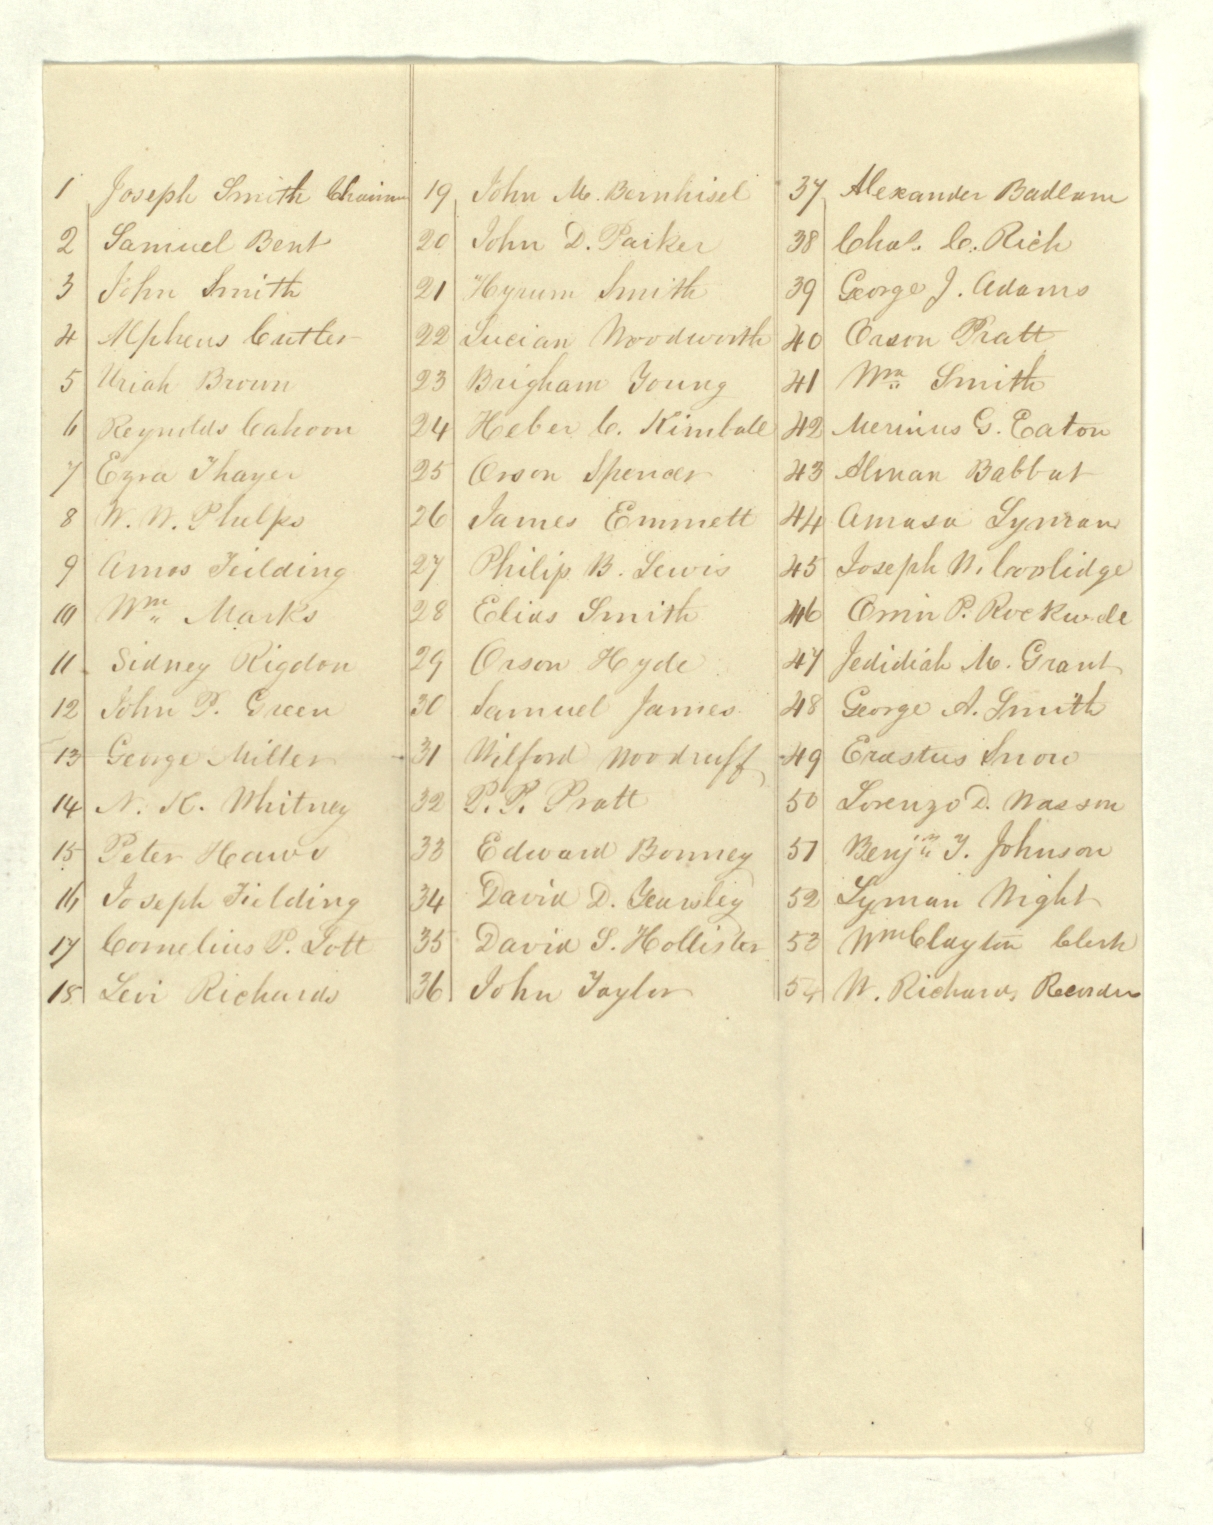 1 Joseph Smith Chairman
2 Samuel Bent
3 John Smith
4 Alpheus Cutler
5 Uriah Brown
6 Reynolds Cahoon
7 Ezra Thayer
8 W. W. Phelps
9 Amos Feilding
10 Wm Marks
11 Sidney Rigdon
12 John P. Green
13 George Miller
14 N. K. Whitney
15 Peter Haws
16 Joseph Fielding
17 Cornelius P. Lott
18 Levi Richards
19 John M. Bernhisel
20 John D. Parker
21 Hyrum Smith
22 Lucian Woodworth
23 Brigham Young
24 Heber C. Kimball
25 Orson Spencer
26 James Emmett
27 Philip B. Lewis
28 Elias Smith
29 Orson Hyde
30 Samuel James
31 Wilford Woodruff
32 P. P. Pratt
33 Edward Bonney
34 David D. Yearsley
35 David S. Hollister
36 John Taylor
37 Alexander Badlam
38 Chas. C. Rich
39 George J. Adams
40 Orson Pratt
41 Wm Smith
42 Merinus G. Eaton
43 Alman Babbut
44 Amasa Lyman
45 Joseph W. Coolidge
46 Orrin P. Rockwell
47 Jedidiah M. Grant
48 George A. Smith
49 Erastus Snow
50 Lorenzo D. Wasson
51 Benjn F. Johnson
52 Lyman Wight
53 Wm Clayton Clerk
54 W. Richards Recorder